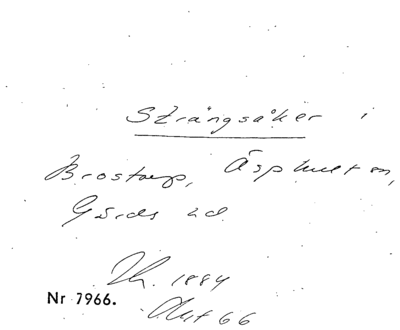 Strängsåker i
Brostorp, Äsphult sn,
Gärds hd
Th. 1884
Nr 7966.
Okt 66